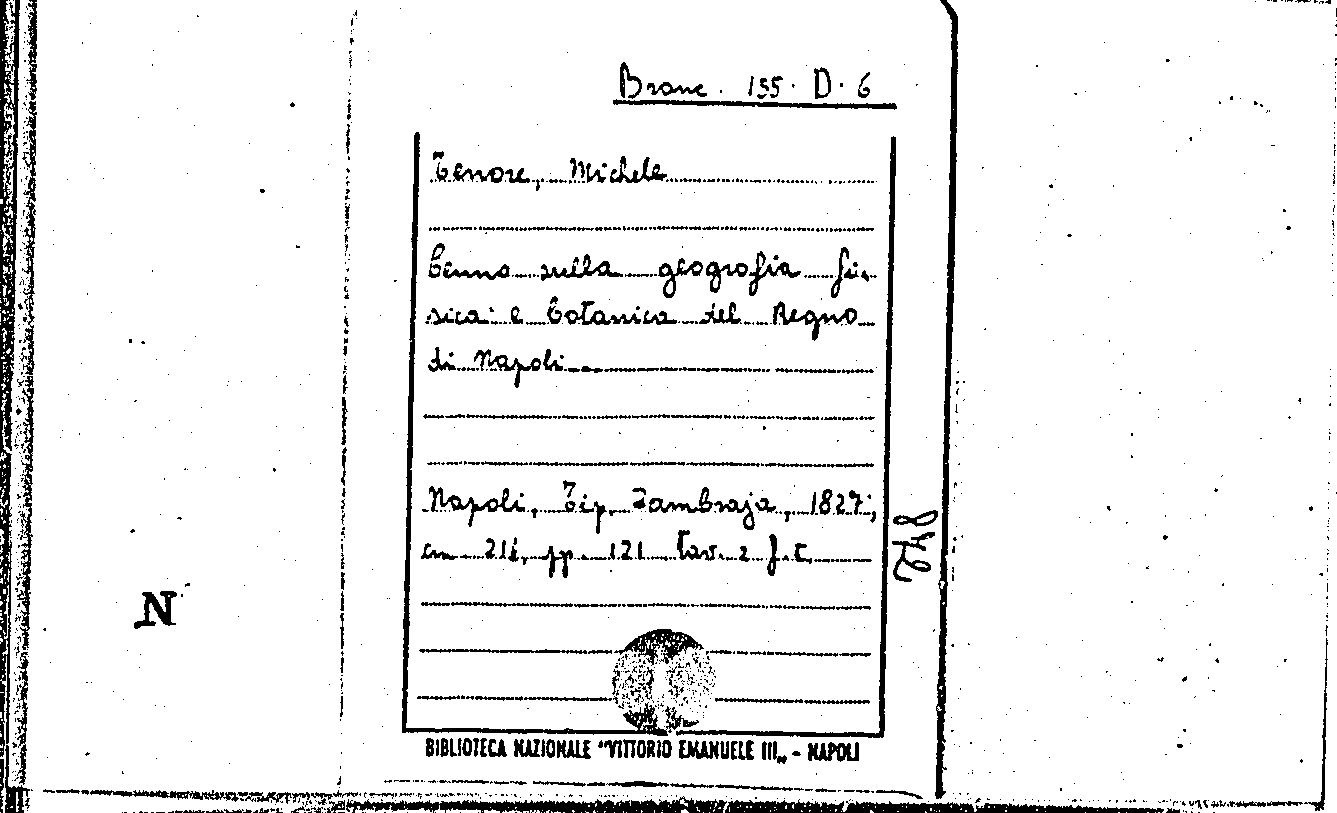 Branc. 155. D. 6
Tenore, Michele
Cenno sulla geografia fi-
sica e botanica del Regno
di Napoli...
Napoli, Tip. Zambraja, 1827;
cm 21, pp. 121 tav. 2 f.t.
N
BIBLIOTECA NAZIONALE "VITTORIO EMANUELE III„ - NAPOLI